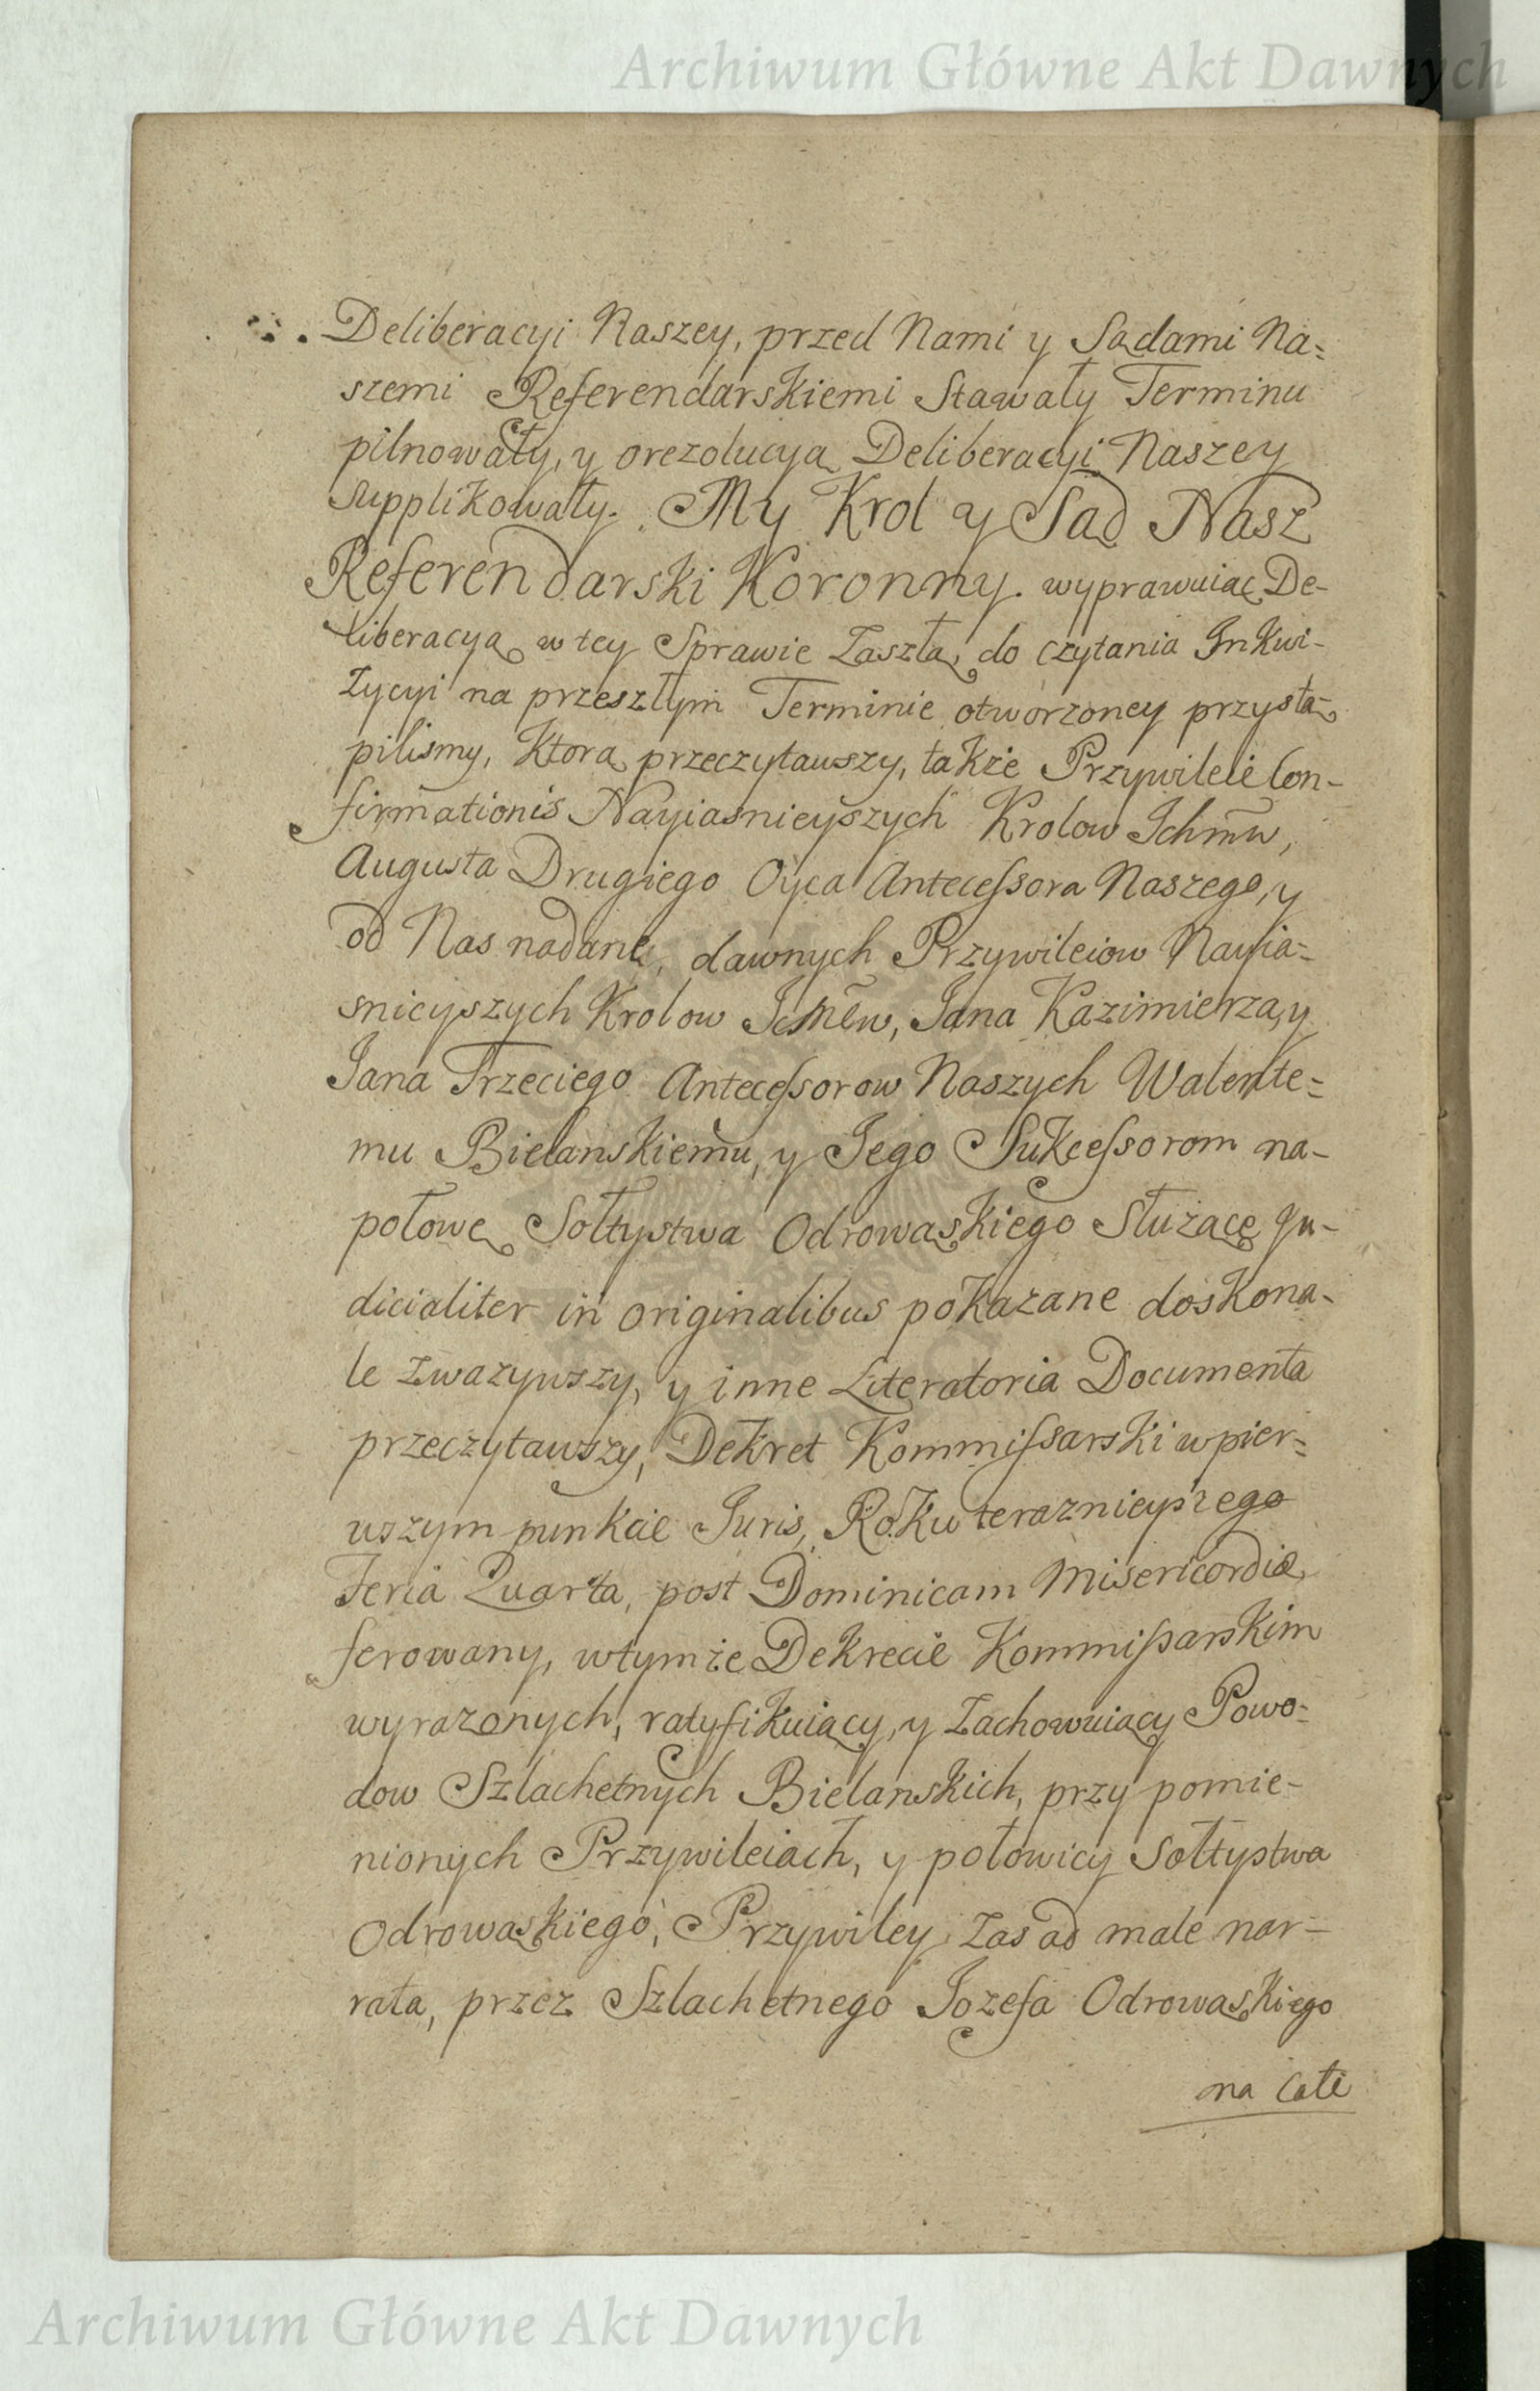 Archiwum Główne Akt Dawnych
Deliberacyi Naszey, przed Nami y Sądami Na=
szemi Referendarskiemi Stawały Terminu
pilnowały, y orezolucyą Deliberacyi Naszey
supplikowały. My Krol y Sąd Nasz
Referendarski Koronny. wyprawuiąc De-
liberacyą w tey Sprawie Zaszłą, do czytania Inkwi-
zycyi na przeszłym Terminie otworzoney przystą-
pilismy, Ktorą przeczytawszy, takze Przywileie Con-
firmationis Nayiasnieyszych Krolow Ichmw,
Augusta Drugiego Oyca Antecessora Naszego, y
od Nas nadane, dawnych Przywileiow Nayia=
snieyszych Krolow Ichmw, Jana Kazimierza, y
Jana Trzeciego Antecessorow Naszych Walente=
mu Bielanskiemu, y Jego Sukcessorom na-
połowę Sołtystwa Odrowąskiego Służące Ju-
dicialiter in originalibus pokazane doskona-
le zwazywszy, y inne Literatoria Documenta
przeczytawszy, Dekret Kommissarski w pier=
wszym punkcie Juris, Roku teraznieyszego
Feria Quarta, post Dominicam Misericordiæ,
ferowany, wtymze Dekrecie Kommissarskim
wyrazonych, ratyfikuiący, y Zachowuiący Powo-
dow Szlachetnych Bielanskich, przy pomie-
nionych Przywileiach, y połowicy Sołtystwa
Odrowąskiego, Przywiley zas ad male nar-
rata, przez Szlachetnego Jozefa Odrowąskiego
na całe
Archiwum Główne Akt Dawnych